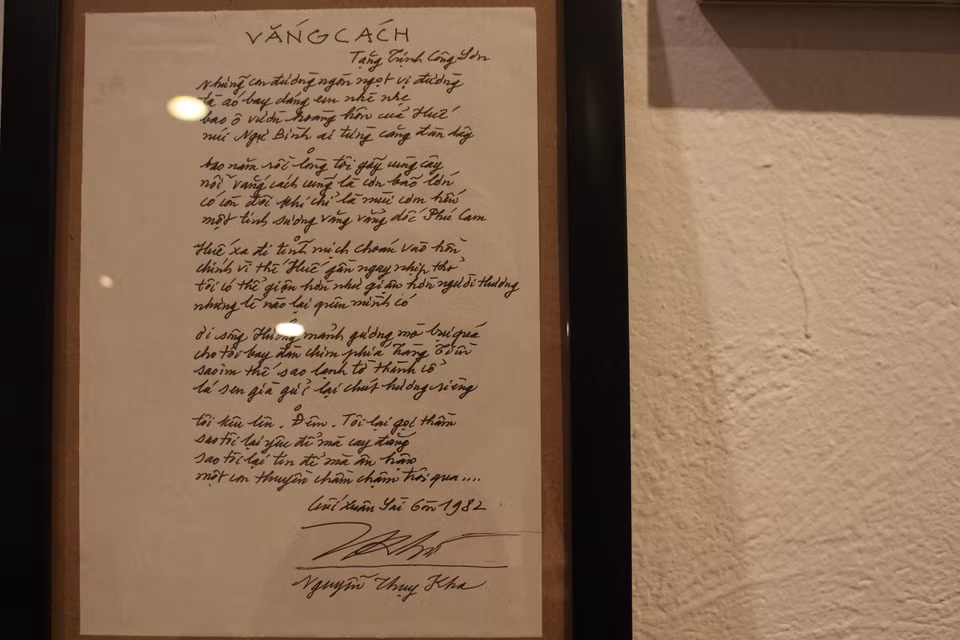 VẮNG CÁCH
Tặng Trịnh Công Sơn
Những con đường ngòn ngọt vị đường
tà áo bay dáng em nhè nhẹ
bao ô vuông hoàng hôn của Huế
núi Ngự Bình ai từng căng đàn dây
bao năm rồi lòng tôi gãy cung cây
nỗi vắng cách cũng là cơn bão lớn
có cơn đói khi chỉ là mùi cơm hến
một tinh sương văng vẳng dốc Phú Cam
Huế xa đi tĩnh mịch choán vào hồn
chính vì thế Huế gần ngay nhịp thở
tôi có thể giận hờn như giận hờn người thương
nhưng lẽ nào lại quên mình có
ơi sông Hương mảnh gương mờ bụi quá
cho tôi bay đàn chim phía Tràng Tiền
sao im thế sao lạnh tờ thành cổ
lá sen già gửi lại chút hương riêng
tôi kêu lên. Đêm. Tôi lại gọi thầm
sao tôi lại yêu để mà cay đắng
sao tôi lại tin để mà ân hận
một con thuyền chầm chậm trôi qua....
Cuối xuân Sài Gòn 1982
Nguyễn Thụy Kha